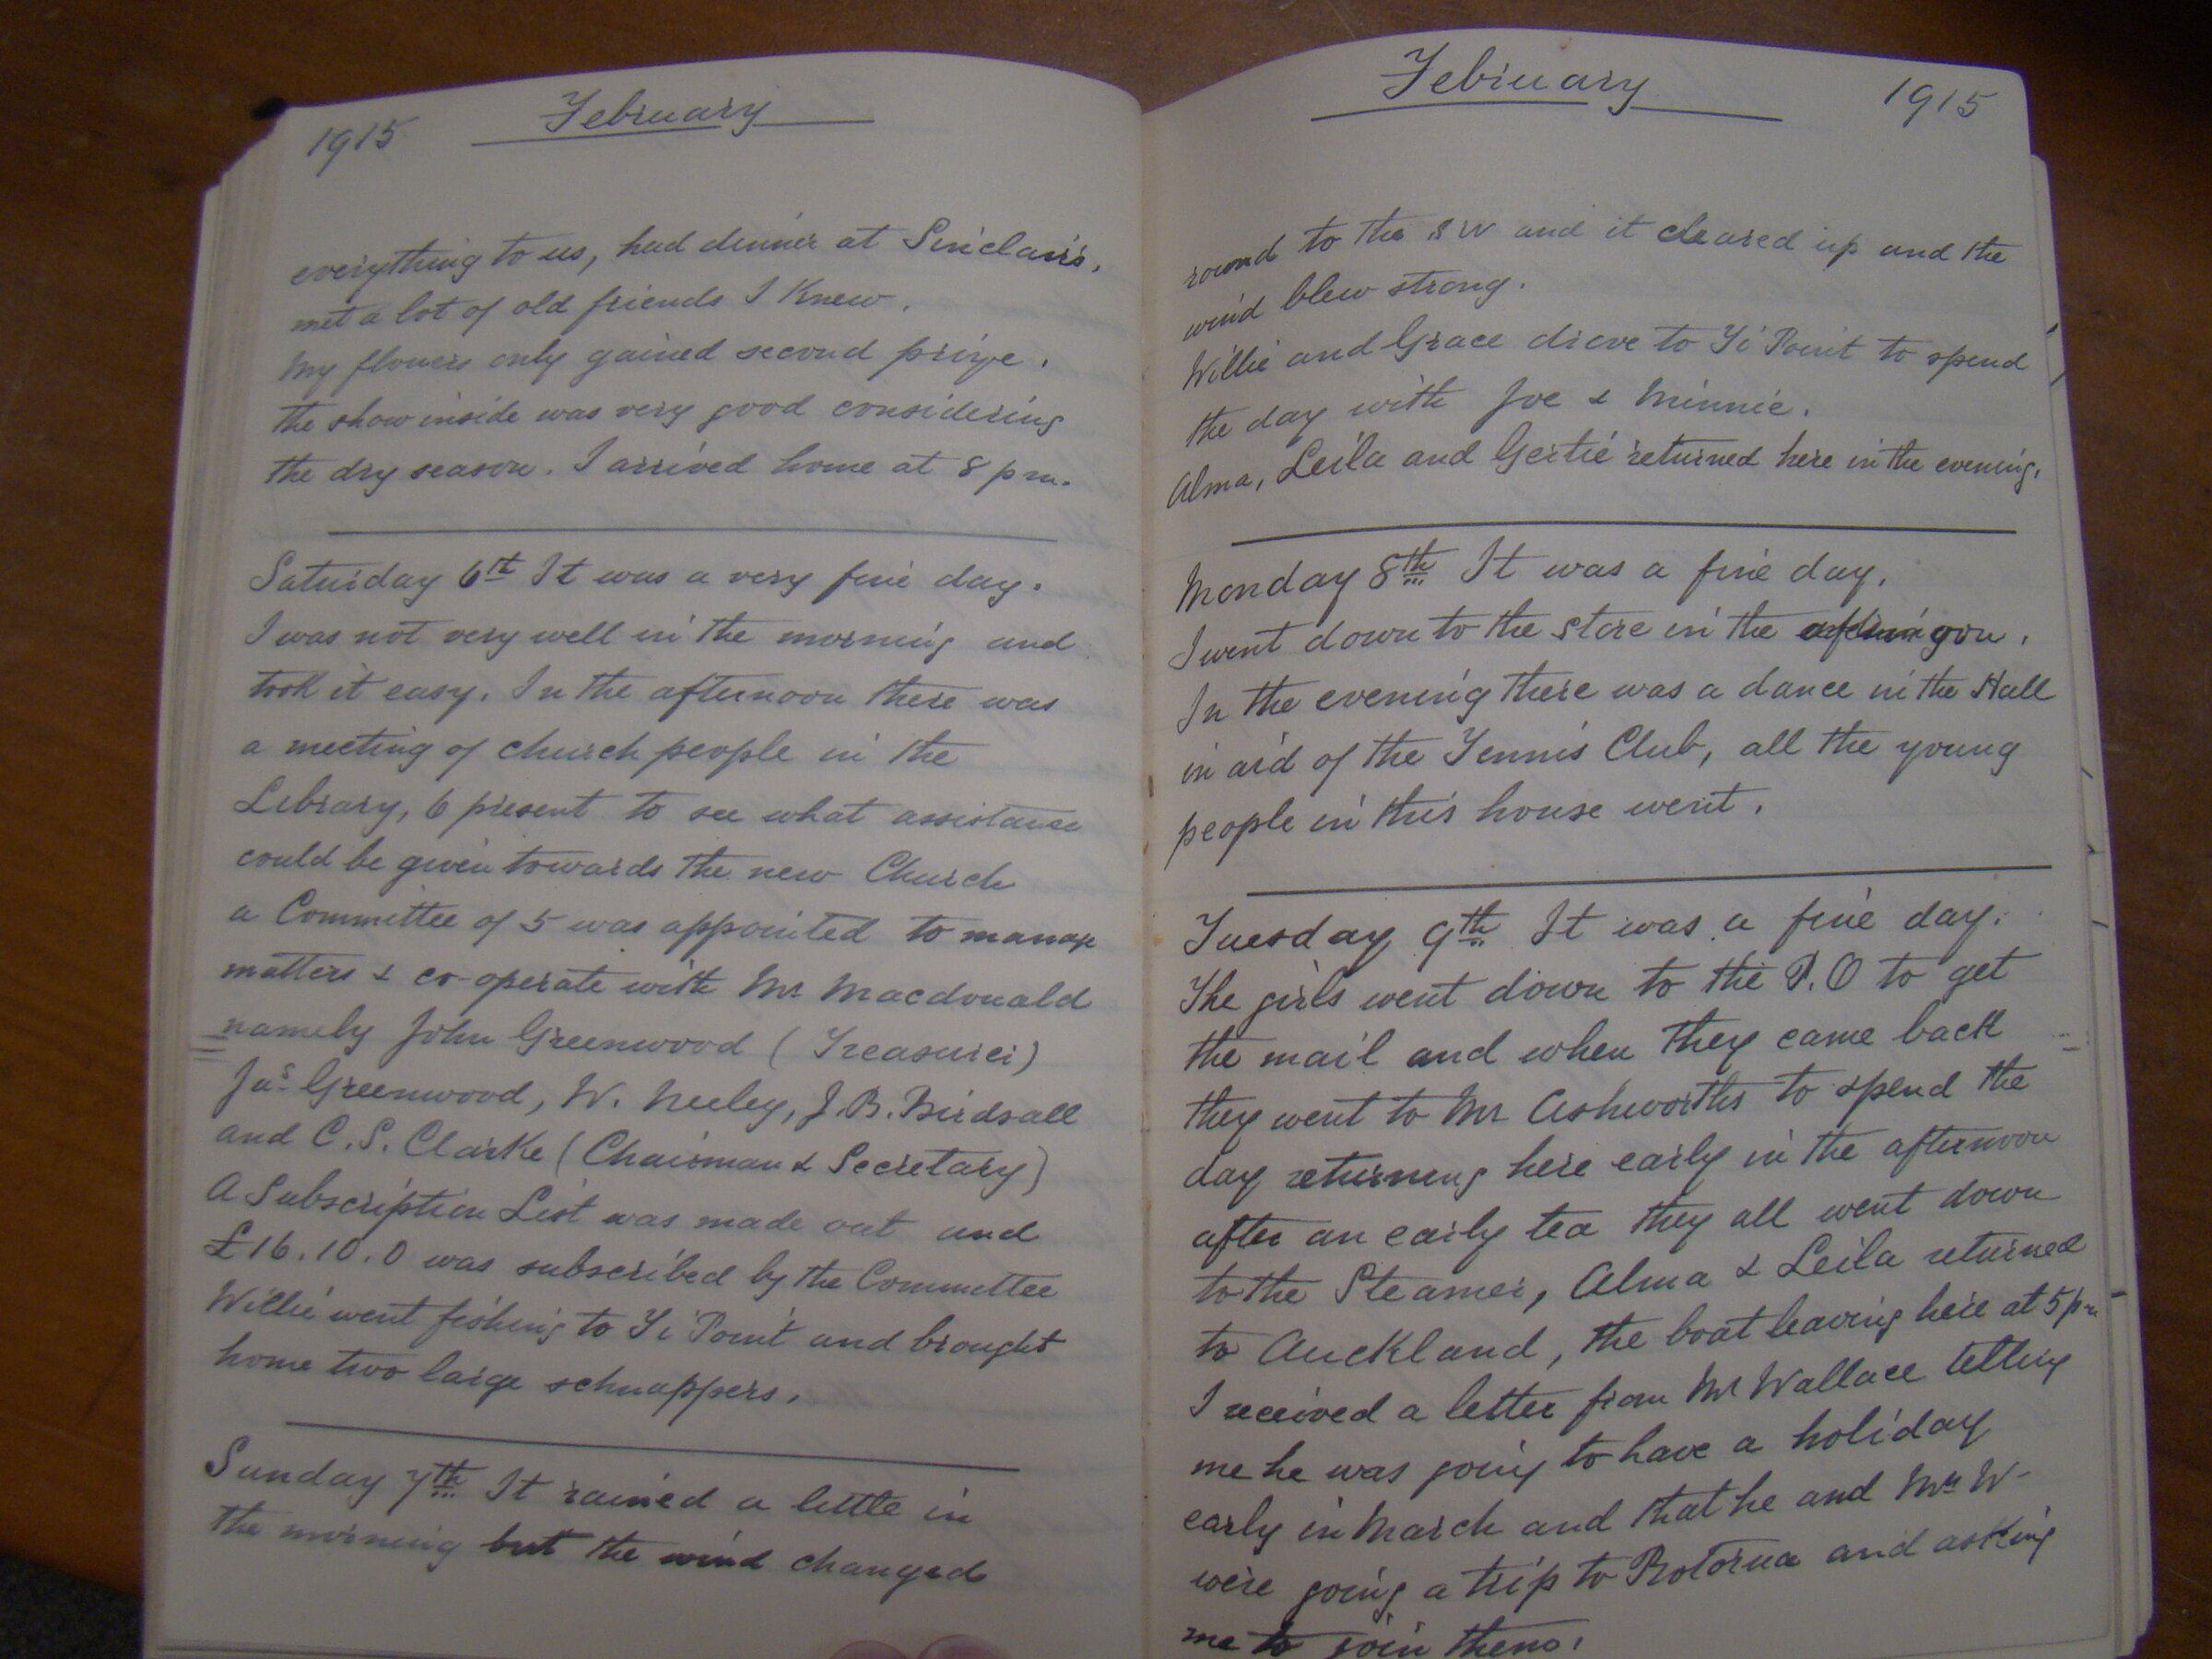 1915 February
everything to us, had dinner at Sinclair's,
met a lot of old friends I knew.
My flowers only gained second prize.
The show inside was very good considering
the dry season. I arrived home at 8 pm.
Saturday 6th It was a very fine day.
I was not very well in the morning and
took it easy. In the afternoon there was
a meeting of church people in the
Library, 6 present to see what assistance
could be given towards the new Church
a Committee of 5 was appointed to manage
matters & co-operate with Mr Macdonald
namely John Greenwood (Treasurer)
Jas Greenwood, W. Neeley, J.B. Birdsall
and C.S. Clarke (Chairman & Secretary)
A Subscription List was made out and
£16.10.0 was subscribed by the Committee
Willie went fishing to Ti Point and brought
home two large schnappers.
Sunday 7th It rained a little in
the morning but the wind changed
February 1915
round to the SW and it cleared up and the
wind blew strong.
Willie and Grace drove to Ti Point to spend
the day with Joe & Minnie.
Alma, Leila and Gertie returned here in the evening.
Monday 8th It was a fine day.
I went down to the store in the afternoon.
In the evening there was a dance in the Hall
in aid of the Tennis Club, all the young
people in this house went.
Tuesday 9th It was a fine day.
The girls went down to the P.O to get
the mail and when they came back
they went to Mr Ashworths to spend the
day returning here early in the afternoon
after an early tea they all went down
to the Steamer, Alma & Leila returned
to Auckland, the boat leaving here at 5 pm
I received a letter from Mr Wallace telling
me he was going to have a holiday
early in March and that he and Mrs W-
were going a trip to Rotorua and asking
me to join them.